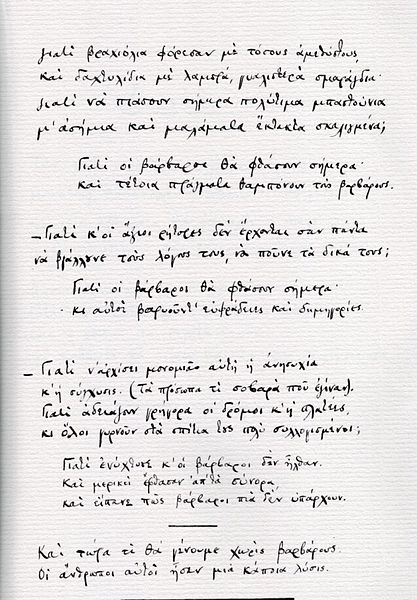 γιατί βραχιόλια φόρεσαν μὲ τόσους ἀμεθύστους,
καὶ δαχτυλίδια μὲ λαμπρά, γυαλιστερὰ σμαράγδια·
γιατί νὰ πιάσουν σήμερα πολύτιμα μπαστούνια
μ' ἀσήμια καὶ μαλάματα ἔκτακτα σκαλιγμένα;
Γιατί οἱ βάρβαροι θὰ φθάσουν σήμερα·
καὶ τέτοια πράγματα θαμπόνουν τοὺς βαρβάρους.
–Γιατί κ' οἱ ἄξιοι ρήτορες δὲν ἔρχονται σὰν πάντα
νὰ βγάλλουνε τοὺς λόγους τους, νὰ ποῦνε τὰ δικά τους;
Γιατί οἱ βάρβαροι θὰ φθάσουν σήμερα·
κι αὐτοὶ βαρυοῦντ' εὐφράδειες καὶ δημηγορίες.
–Γιατί ν' ἀρχίσει μονομιᾶς αὐτὴ ἡ ἀνησυχία
κ' ἡ σύγχυσις. (Τὰ πρόσωπα τί σοβαρὰ ποῦ ἔγιναν).
Γιατί ἀδειάζουν γρήγορα οἱ δρόμοι κ' ἡ πλατέες,
κι ὅλοι γυρνοῦν στὰ σπίτια τους πολὺ συλλογισμένοι;
Γιατί ἐνύχτωσε κ' οἱ βάρβαροι δὲν ἦλθαν.
Καὶ μερικοὶ ἔφθασαν ἀπ' τὰ σύνορα,
καὶ εἴπανε πῶς βάρβαροι πιὰ δὲν ὑπάρχουν.
Καὶ τώρα τί θὰ γένουμε χωρὶς βαρβάρους.
Οἱ ἄνθρωποι αὐτοὶ ἦσαν μιὰ κάποια λύσις.